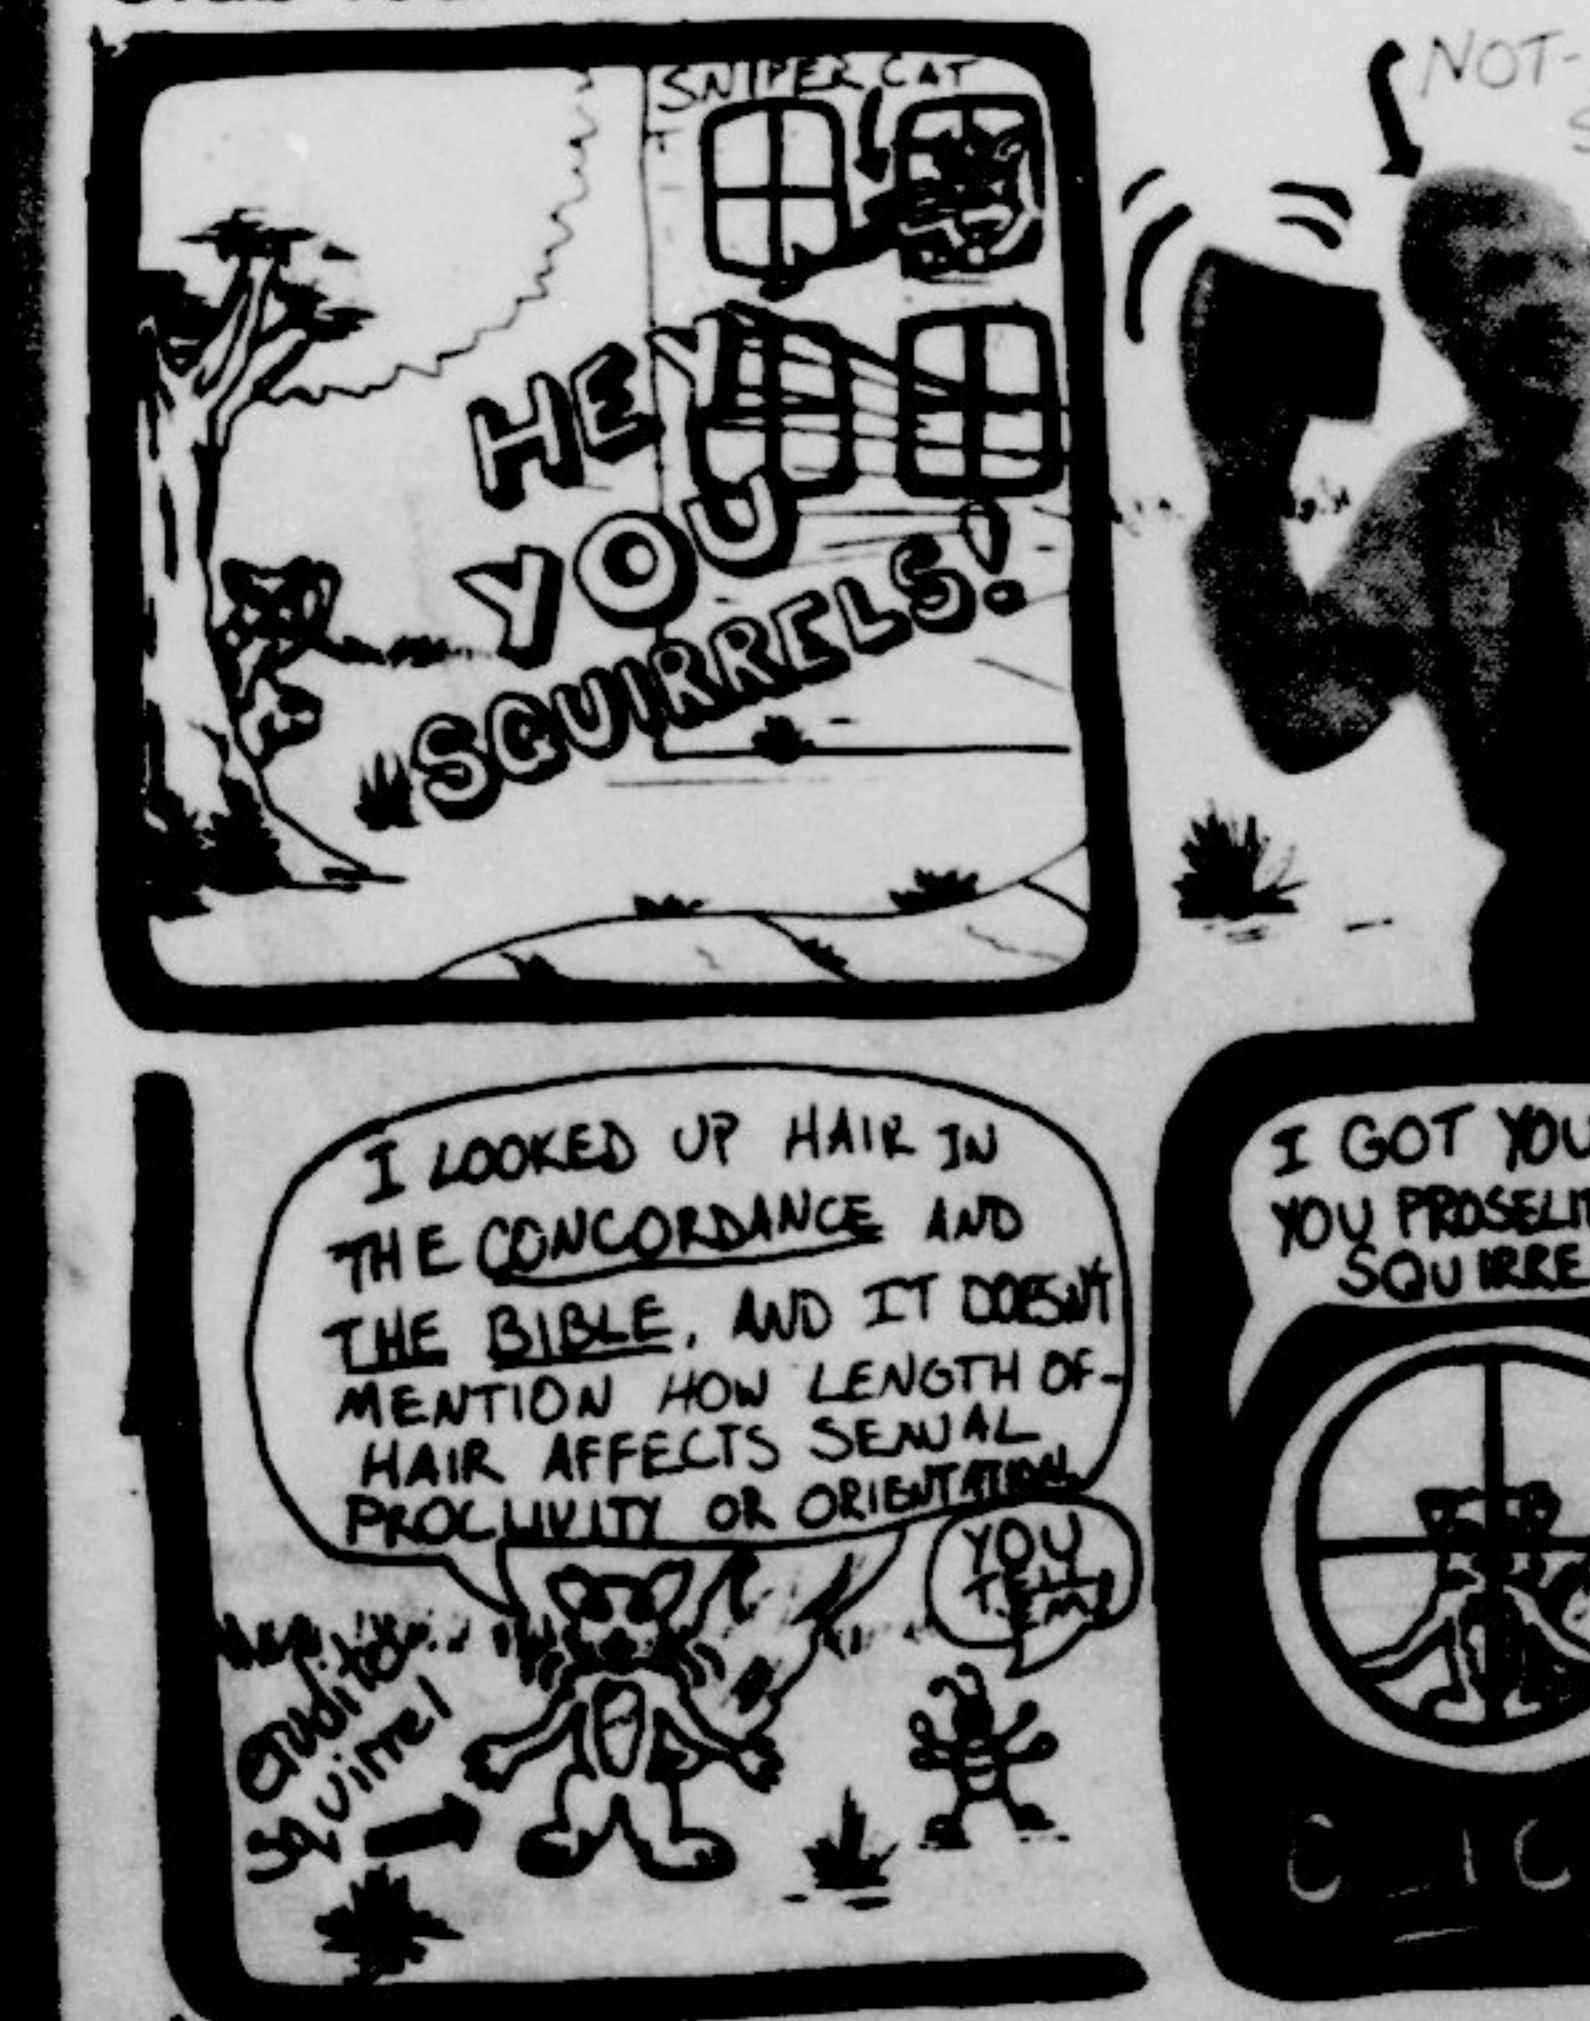 SNIPER CAT
HEY
YOU
SQUIRRELS!
NOT-
I LOOKED UP HAIR IN
THE CONCORDANCE AND
THE BIBLE, AND IT DOESN'T
MENTION HOW LENGTH OF-
HAIR AFFECTS SEXUAL
PROCLIVITY OR ORIENTATION
YOU
TELL
'EM!
erudite
squirrel
I GOT YOU
YOU PROSELIT
SQUIRRE